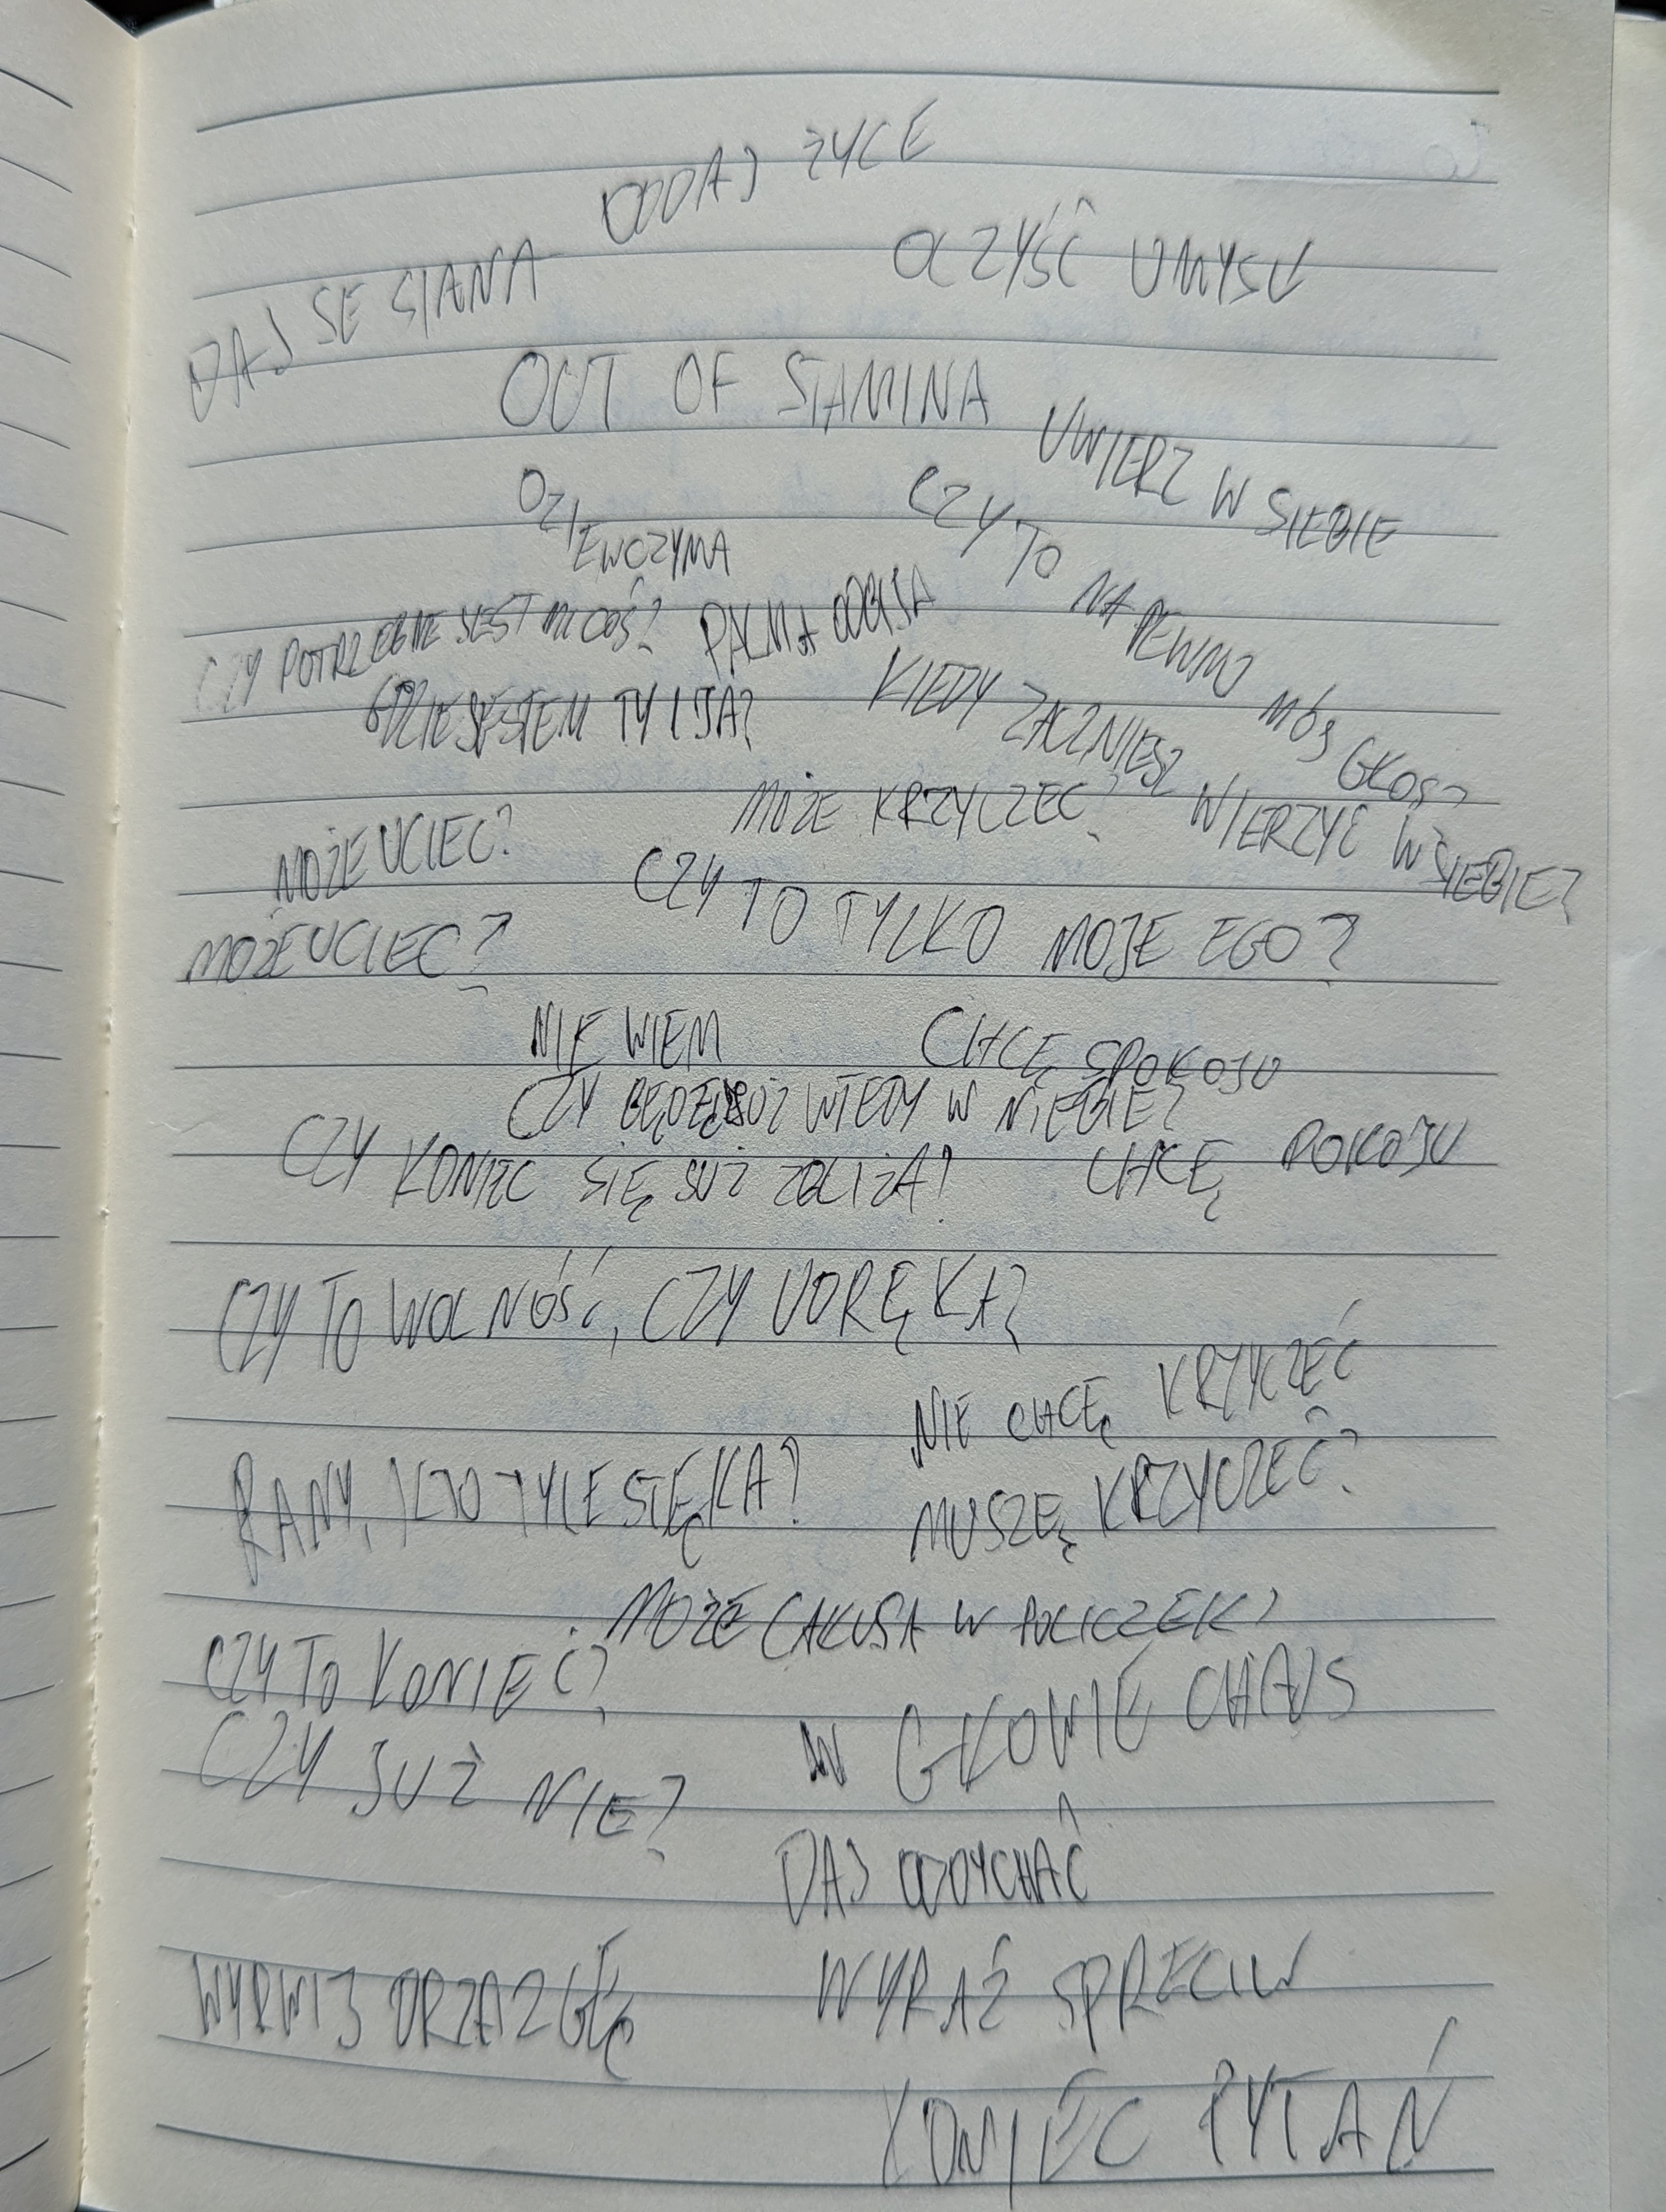 ODDAJ ŻYCE
DAJ SE SIANA
OCZYŚĆ UMYSŁ
OUT OF STAMINA
UWIERZ W SIEBIE
CZY TO NA PEWNO MÓJ GŁOS?
CZY POTRZEBNE JEST MI COŚ?
PALMA ODBIJA
GDZIE JESTEM TY I JA?
KIEDY ZACZNIESZ WIERZYĆ W SIEBIE?
MOŻE KRZYCZEĆ?
MOŻE UCIEC?
CZY TO TYLKO MOJE EGO?
MOŻE UCIEC?
NIE WIEM
CHCĘ SPOKOJU
CZY BĘDĘ JUŻ WTEDY W NIEBIE?
CZY KONIEC SIĘ JUŻ ZBLIŻA?
CHCĘ POKOJU
CZY TO WOLNOŚĆ, CZY UDRĘKA?
NIE CHCĘ KRZYCZEĆ
RANY, KTO TYLE STĘKA?
MUSZĘ KRZYCZEĆ?
MOŻE CAŁUSA W POLICZEK?
CZY TO KONIEC?
W GŁOWIE CHAOS
CZY JUŻ NIE?
DAJ ODDYCHAĆ
WYRWIJ DRZAZGĘ
WYRAŹ SPRZECIW
KONIEC PYTAŃ